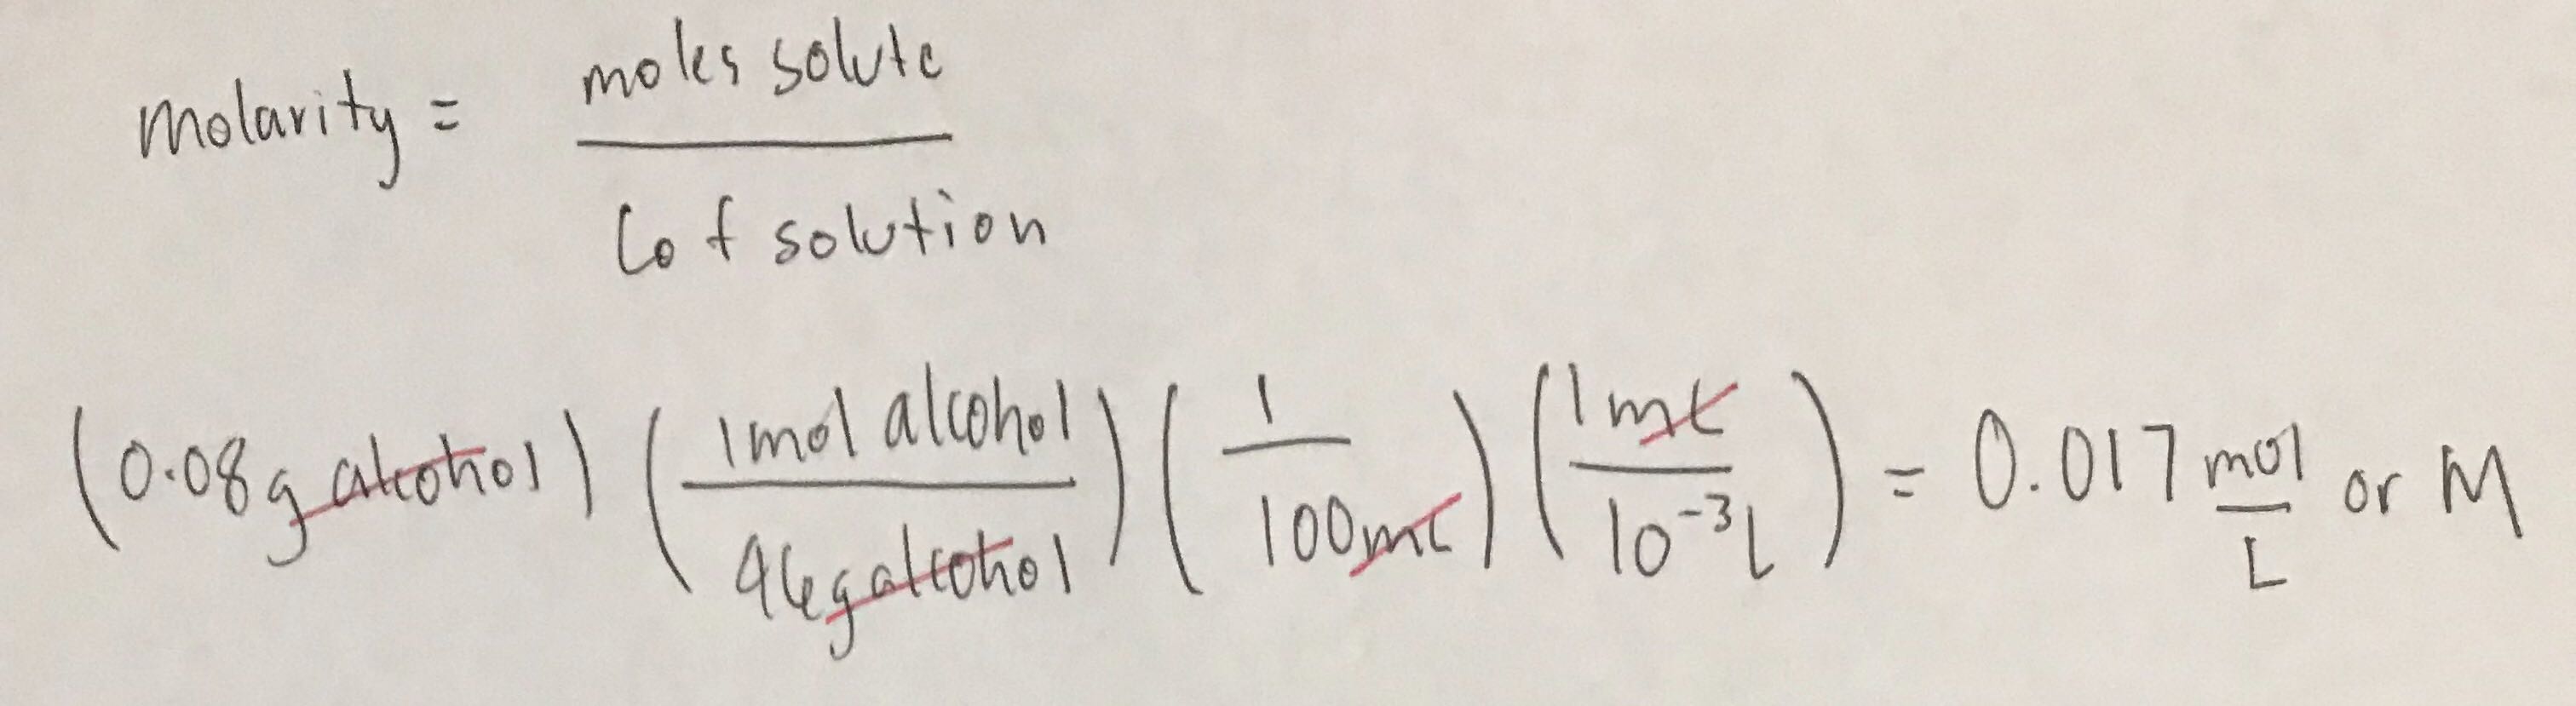 molarity = moles solute
L of solution
(0.08g alcohol) (1 mol alcohol / 46g alcohol) (1 / 100mL) (1 mL / 10⁻³ L) = 0.017 mol/L or M